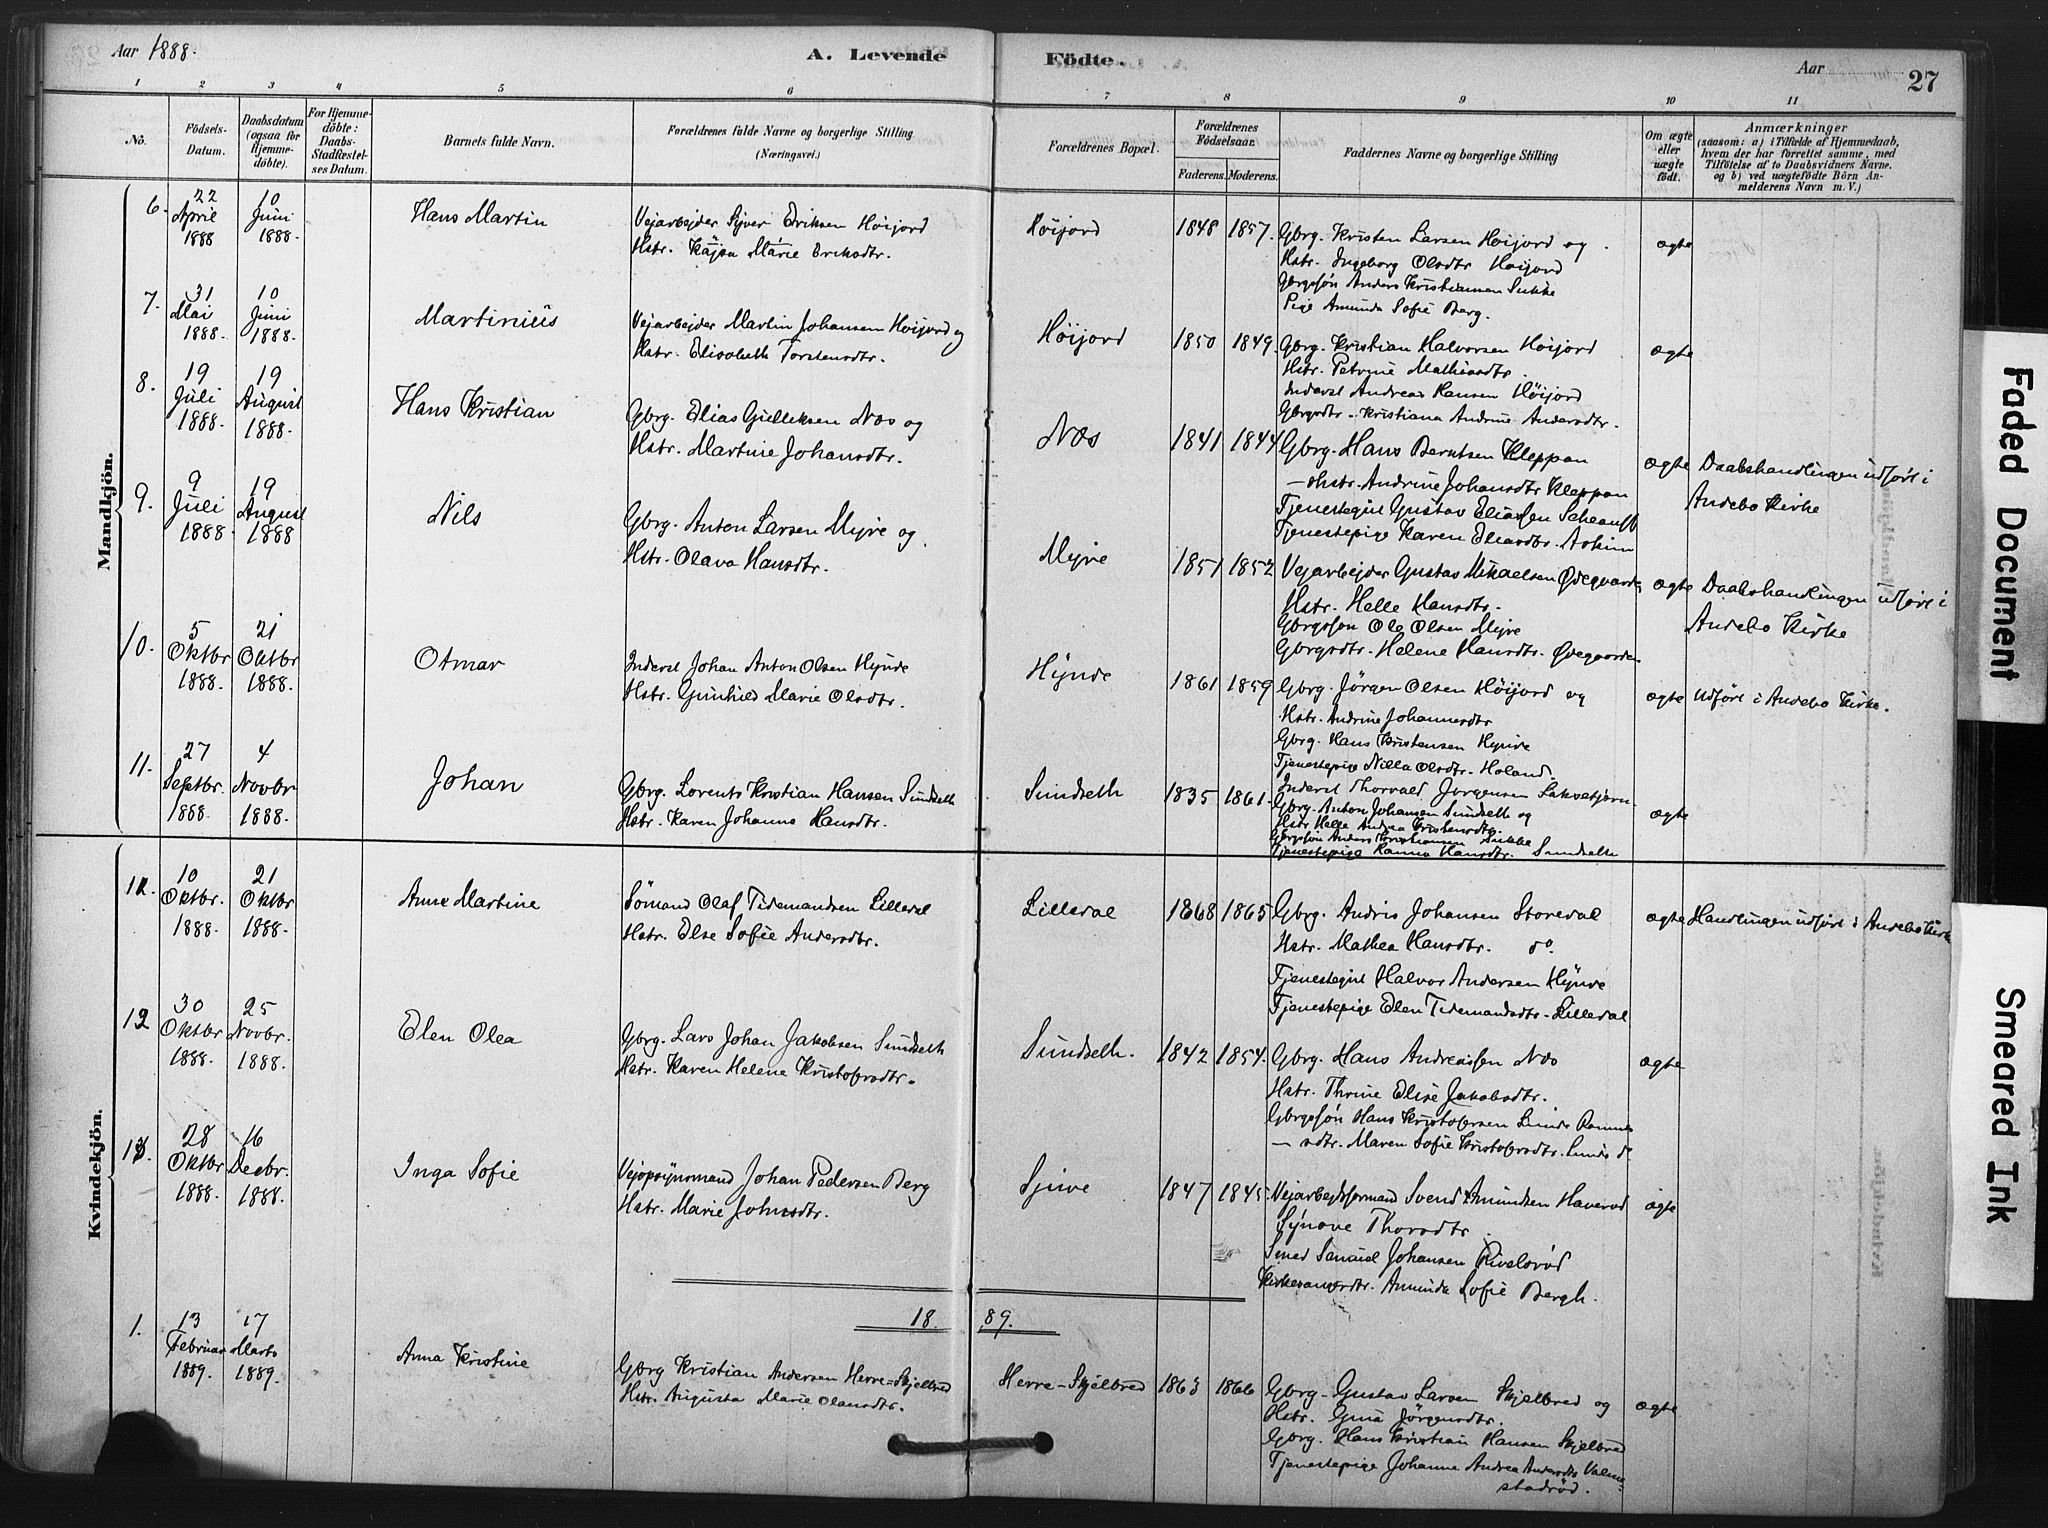 Aar 1888.
A. Levende
Födte.
Aar
27
1 2 3 4 5 6 7 8 9 10 11
No.
Födsels-Datum.
Daabsdatum (ogsaa för Hjemmedöbte).
For Hjemmedöbte: Daabs-Stadfæstelses Datum.
Barnets fulde Navn.
Forældrenes fulde Navne og borgerlige Stilling (Næringsvei.)
Forældrenes Bopæl.
Forældrenes Födselsaar.
Faderens. Moderens.
Faddernes Navne og borgerlige Stilling
Om ægte eller uægte födt.
Anmærkninger
(saasom: a) i Tilfælde af Hjemmedaab, hvem der har forrettet samme, med Tilföielse af to Daabsvidners Navne. og b) ved uægtefödte Börn Anmelderens Navn m. V.)
Mandkjön.
6. 22 April 1888 10 Juni 1888. Hans Martin
Vejarbejder Syver Eriksen Höijord
Hstr. Kajsa Marie Eriksdtr.
Höijord 1848 1857.
Gbrg. Kristen Larsen Höijord og
Hstr. Ingeborg Olsdtr Höijord
Gbrgssøn Anders Kristiansen Sukke
Pige Amunda Sofie Berg.
ægte
7. 31 Mai 1888. 10 Juni 1888. Martinius
Vejarbejder Martin Johansen Höijord og
Hstr. Elisabeth Torstensdtr.
Höijord 1850 1849.
Gbrg. Kristian Halvorsen Höijord
Hstr. Petrine Mathiasdtr.
Inderst Andreas Hansen Höijord
Gbrgsdtr. Kristiana Andrine Andersdtr.
ægte
8. 19 Juli 1888. 19 August 1888. Hans Kristian
Gbrg. Elias Gulliksen Næs og
Hstr. Martine Johansdtr.
Næs 1841 1844
Gbrg. Hans Berntsen Kleppan
– Hstr. Andrine Johansdtr Kleppan
Tjenestegut Gustav Eliassen
Tjenestepige Karen Eliasdtr. Askim
ægte Daabshandlingen udført i
Andebo Kirke
9. 9 Juli 1888. 19 August 1888 Nils
Gbrg. Anton Larsen Myre og
Hstr. Olava Hansdtr.
Myre 1851 1852
Vejarbejder Gustav Mikaelsen Ødegaarden
Hstr. Helle Hansdtr.
Gbrgssøn Ole Olsen Myre
Gbrgsdtr. Helene Hansdtr. Ødegaarden
ægte Daabshandlingen udført i
Andebo Kirke
10. 5 Oktbr 1888. 21 Oktbr 1888. Otmar
Inderst Johan Anton Olsen Hynde
Hstr. Gunhild Marie Olsdtr.
Hynde 1861 1859
Gbrg. Jörgen Olsen Höijord og
Hstr. Andrine Johannesdtr
Gbrg. Hans Kristensen Hynde
Tjenestepige Nilla Olsdtr. Holand.
ægte udført i Andebo Kirke.
11. 27 Septbr. 1888. 4 Novbr 1888. Johan
Gbrg. Lorents Kristian Hansen Sundseth
Hstr. Karen Johanne Hansdtr.
Sundseth 1835 1861.
Inderst Thorvald Jörgensen Laksetjern
Gbrg. Anton Johansen Sundseth og
Hstr Helle Andrea Kristensdtr.
Gbrgssøn Anders Kristiansen Sukke
Tjenestepige Hanna Hansdtr. Sundseth
ægte
Kvindekjön.
11. 10 Oktbr. 1888. 21 Oktbr 1888. Anne Martine
Sömand Olaf Tidemandsen Lilledal
Hstr. Else Sofie Andersdtr.
Lilledal 1868 1865
Gbrg. Andris Johansen Storedal
Hstr. Mathea Hansdtr. do.
Tjenestegut Halvor Andersen Hynde
Tjenestepige Elen Tidemandsdtr. Lilledal
ægte Handlingen udført i Andebo Kirke
12 30 Oktbr 1888. 25 Novbr. 1888. Elen Olea
Gbrg. Lars Johan Jakobsen Sundseth
Hstr. Karen Helene Kristofersdtr.
Sundseth. 1842 1854.
Gbrg. Hans Andreassen Næs
Hstr. Thrine Elise Jakobsdtr.
Gbrgssøn Hans Kristofersen Linde Ramnes
– sdtr. Maren Sofie Kristofersdtr. Linde do
ægte
13. 28 Oktbr 1888. 16 Decbr. 1888. Inga Sofie
Vejopsynsmand Johan Pedersen Berg
Hstr. Marie Johnsdtr.
Sjuve 1847 1845
Vejarbejdsformand Svend Amundsen Haverød
Synøve Thorsdtr.
Smed Samuel Johansen Rivelsrød
Kirkesangerdtr. Amunda Sofie Bergh.
ægte
1889.
1. 13 Februar 1889. 17 Marts 1889. Anna Kristine
Gbrg Kristian Andersen Herre=Skjelbred
Hstr. Augusta Marie Olausdtr.
Herre-Skjelbred 1863 1866
Gbrg. Gustav Larsen Skjelbred og
Hstr. Gina Jörgensdtr.
Gbrg. Hans Kristian Hansen Skjelbred
Tjenestepige Johanne Andrea Andersdtr Valmestadrød.
ægte
Faded Document
Smeared Ink